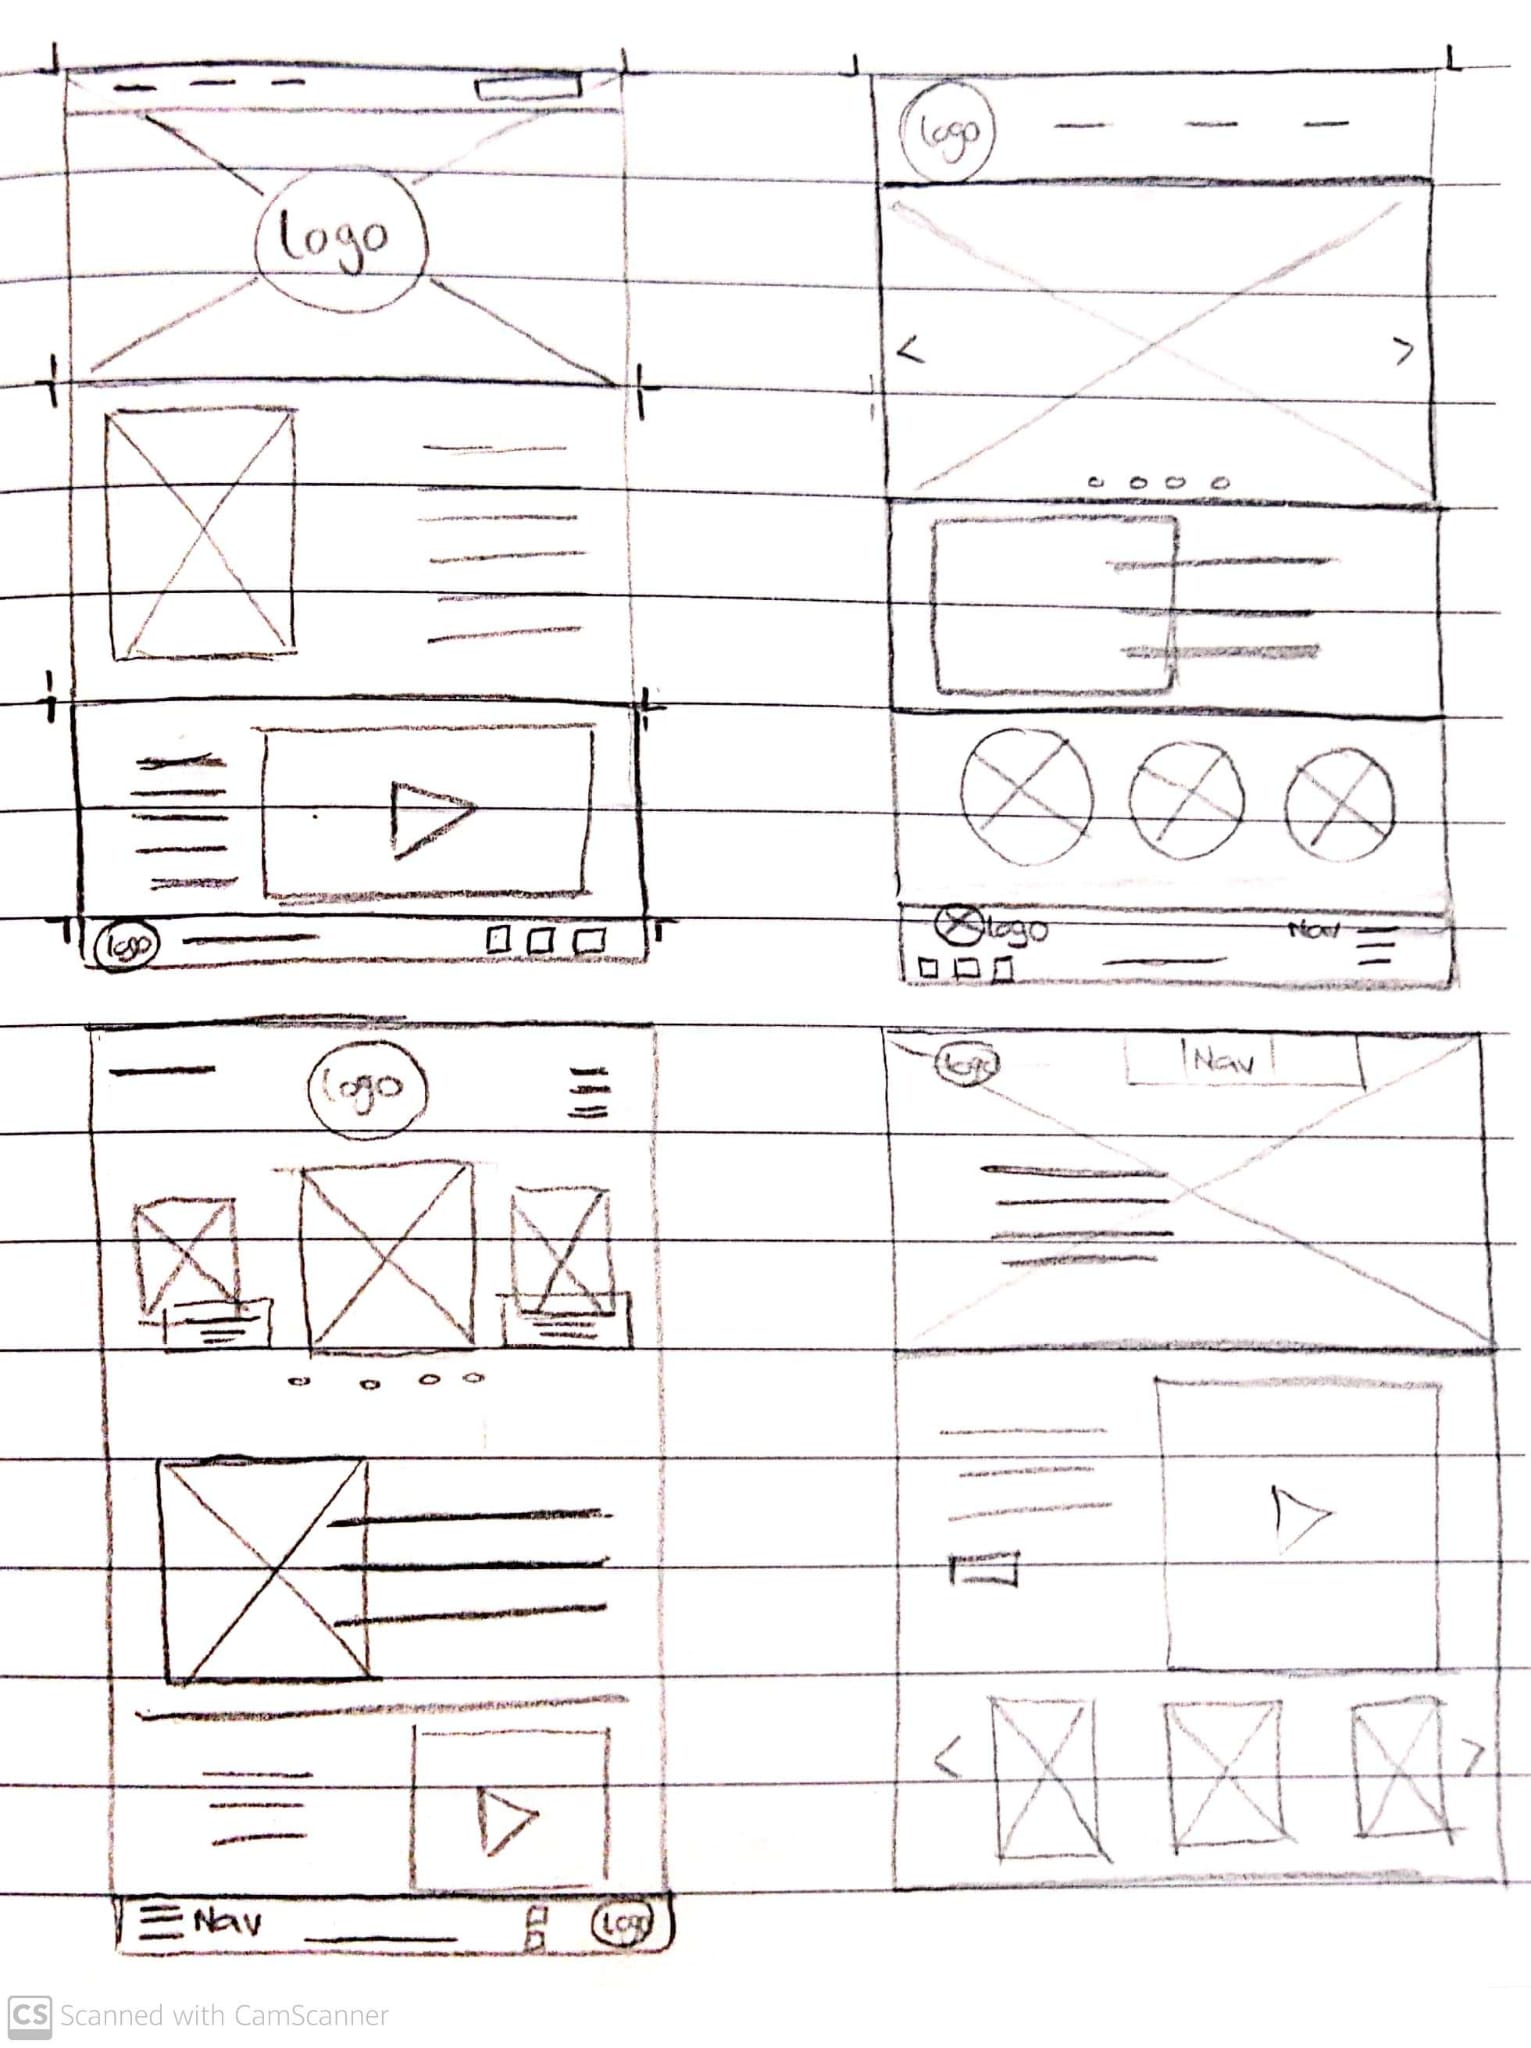 Logo
logo
logo
logo
Nav
logo
logo
Nav
Nav
logo
CS Scanned with CamScanner